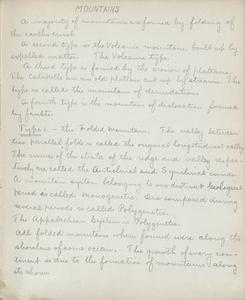 MOUNTAINS
A majority of mountains are formed by folding of
the earth's crust.
A second type is the Volcanic mountain, built up by
expelled matter. The Volcanic type.
A third type is formed by the erosion of plateaus.
The Catskills are an old plateau cut up by streams. The
type is called the mountain of denudation.
A fourth type is the mountain of dislocation formed
by faults.
Type 1. — the Folded Mountain. The valley between
two parallel folds is called the original longitudinal valley.
The curves of the strata of the ridge and valley respec-
tively are called the Anticlinal and Synclinal curves.
A mountain system belonging to one distinct Geological
period is called Monogenetic. One composed during
several periods is called Polygenetic.
The Appalachian System is Polygenetic.
All folded mountains when formed were along the
shoreline of some ocean. The growth of every con-
tinent is due to the formation of mountains along
its shores.